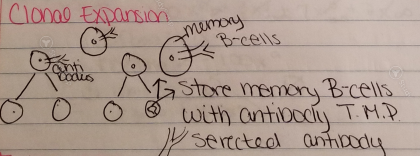 Clonal Expansion
memory
B-cells
anti
bodies
Store memory B-cells
with antibody T.M.P.
selected antibody